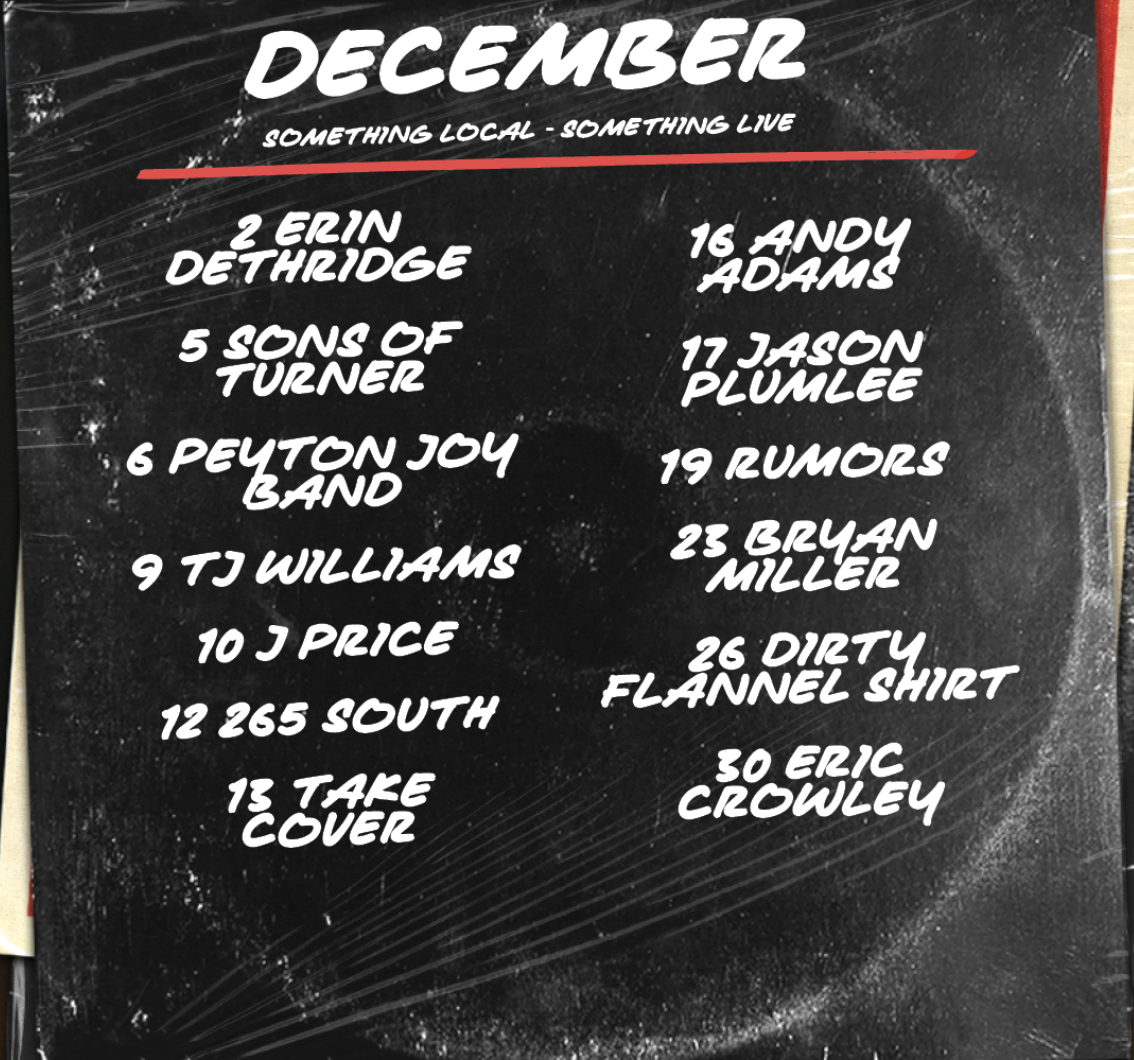 DECEMBER
SOMETHING LOCAL - SOMETHING LIVE
2 ERIN
DETHRIDGE
5 SONS OF
TURNER
6 PEYTON JOY
BAND
9 TJ WILLIAMS
10 J PRICE
12 265 SOUTH
13 TAKE
COVER
16 ANDY
ADAMS
17 JASON
PLUMLEE
19 RUMORS
23 BRYAN
MILLER
26 DIRTY
FLANNEL SHIRT
30 ERIC
CROWLEY